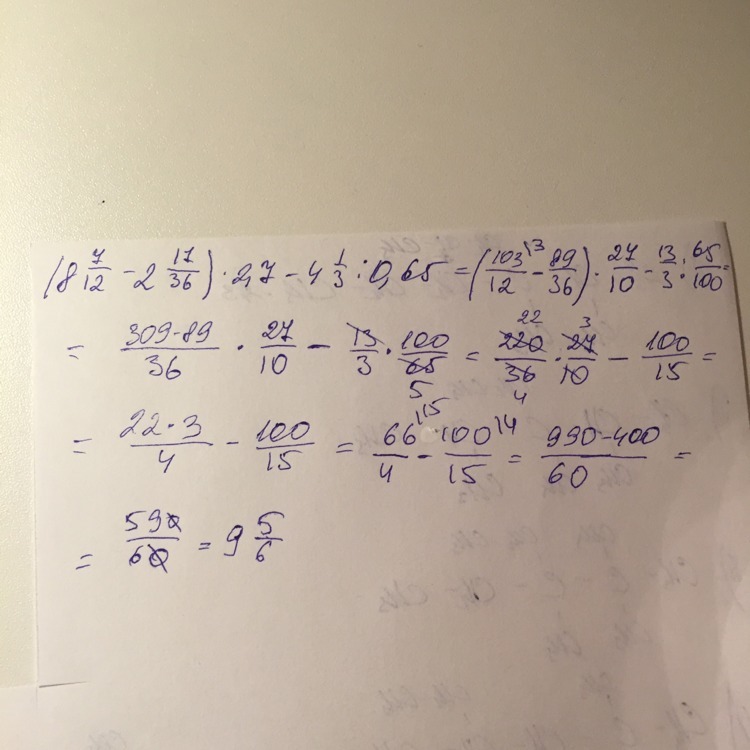 (8 7/12 - 2 17/36) · 2,7 - 4 1/3 : 0,65 = (103/12 ^(13) - 89/36) · 27/10 - 13/3 : 65/100 =
= (309-89)/36 · 27/10 - 13/3 · 100/65 5 = 22 220/36 4 · 3 27/10 - 100/15 =
= (22·3)/4 - 100/15 = 66/4 ^(15) - 100/15 ^(14) = (990-400)/60 =
= 590/60 = 9 5/6